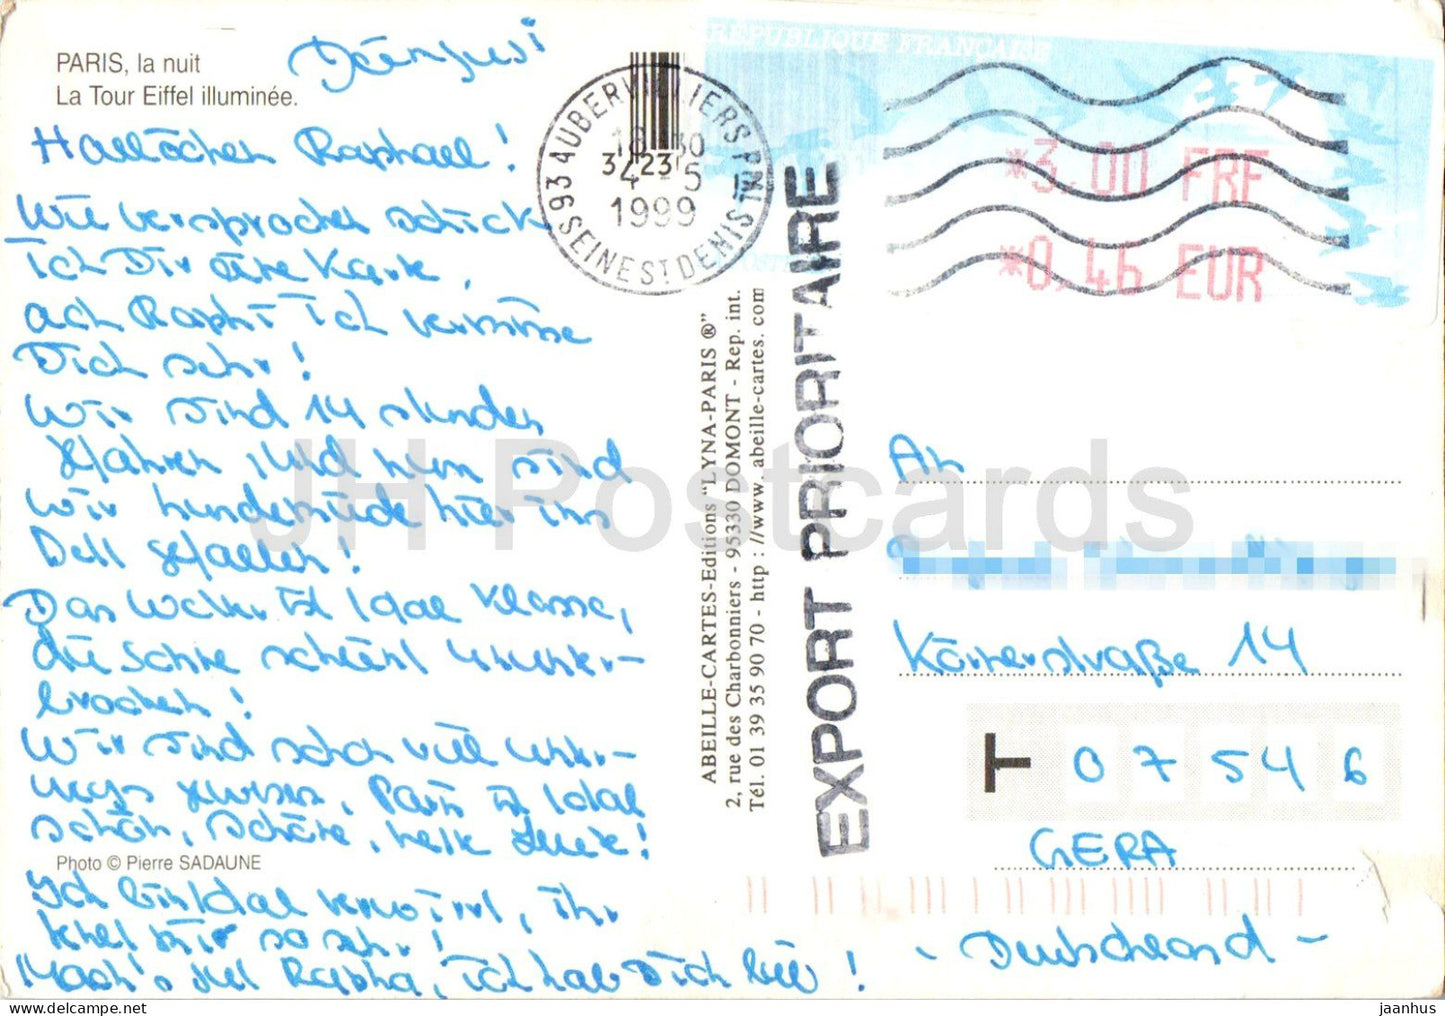 PARIS, la nuit
La Tour Eiffel illuminée.
Hallöchen Raphael!
Wie versprochen schick
ich Dir eine Karte,
ach Raphi ich vermisse
Dich sehr!
Wir sind 14 stunden
gefahren, und nun sind
wir hundemüde hier ins
Bett gefallen!
Das Wetter ist total klasse,
die Sonne scheint ununter-
brochen!
Wir sind schon viel unter-
wegs gewesen. Paris ist total
schön, schöne, nette Leute!
Photo © Pierre SADAUNE
Ich bin total verwirrt, ihr
fehlt mir so sehr!
Mach's gut Rapha, ich hab Dich lieb!
93 AUBERVILLIERS PPAL
18 30
4 -5
1999
SEINE ST DENIS
3 23
REPUBLIQUE FRANÇAISE
*3,00 FRF
*0,46 EUR
EXPORT PRIORITAIRE
ABEILLE-CARTES-Editions "LYNA-PARIS ®"
2, rue des Charbonniers - 95330 DOMONT - Rep. int.
Tél. 01 39 35 90 70 - http : //www. abeille-cartes. com
An
Körnerstraße 14
T 07546
GERA
- Deutschland -
JH Postcards
jaanhus